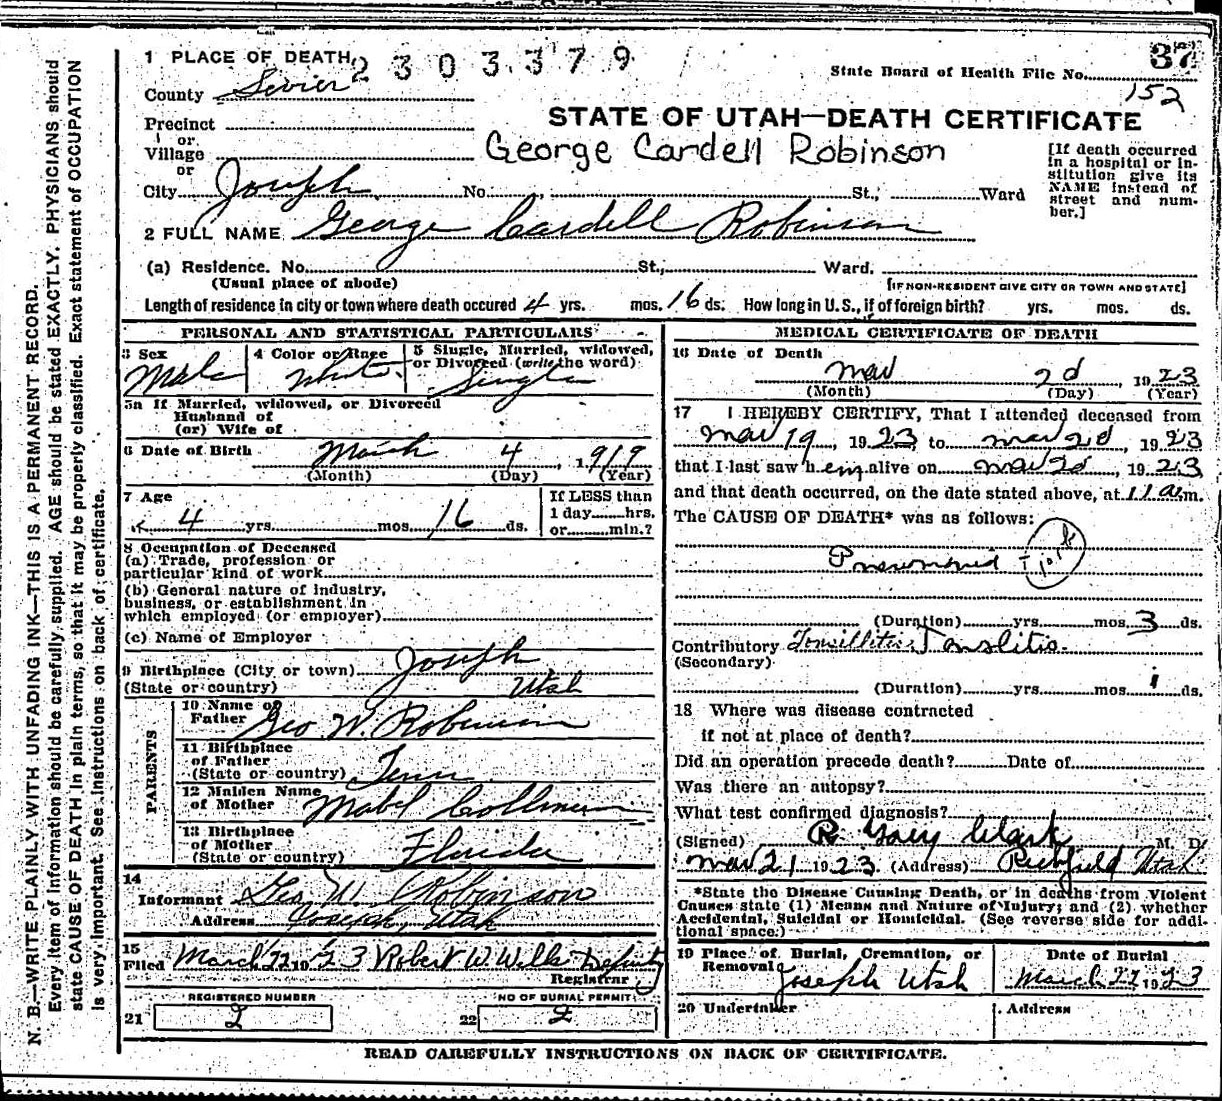 37
1 PLACE OF DEATH 2303379
State Board of Health File No.
152
County Sevier
STATE OF UTAH—DEATH CERTIFICATE
Precinct
or
Village
George Cardell Robinson
[If death occurred in a hospital or institution give its NAME instead of street and number.]
or
City Joseph No. St., Ward
2 FULL NAME George Cardell Robinson
(a) Residence. No. St., Ward.
(Usual place of abode) [IF NON-RESIDENT GIVE CITY OR TOWN AND STATE]
Length of residence in city or town where death occured 4 yrs. mos. 16 ds. How long in U.S., if of foreign birth? yrs. mos. ds.
PERSONAL AND STATISTICAL PARTICULARS
3 Sex
Male
4 Color or Race
White
5 Single, Married, widowed,
or Divorced (write the word)
Single
5a If Married, widowed, or Divorced
Husband of
(or) Wife of
6 Date of Birth March 4, 1919
(Month) (Day) (Year)
7 Age
4 yrs. mos. 16 ds.
If LESS than
1 day hrs.
or min.?
8 Occupation of Deceased
(a) Trade, profession or
particular kind of work
(b) General nature of industry,
business, or establishment in
which employed (or employer)
(c) Name of Employer
9 Birthplace (City or town) Joseph
(State or country) Utah
PARENTS
10 Name of
Father Geo W. Robinson
11 Birthplace
of Father
(State or country) Tenn
12 Maiden Name
of Mother Mabel
13 Birthplace
of Mother
(State or country) Florida
14
Informant Geo. W. Robinson
Address Joseph, Utah
15
Filed March 22 1923 Robert W. Wells Deputy
Registrar
REGISTERED NUMBER
21 2
NO OF BURIAL PERMIT
22 2
MEDICAL CERTIFICATE OF DEATH
16 Date of Death
Mar 20, 1923
(Month) (Day) (Year)
17 I HEREBY CERTIFY, That I attended deceased from
Mar 19, 1923 to Mar 20, 1923
that I last saw h em alive on Mar 20, 1923
and that death occurred, on the date stated above, at 11 a.m.
The CAUSE OF DEATH* was as follows:
Pneumonia
(Duration) yrs. mos. 3 ds.
Contributory Tonsillitis Tonslitis.
(Secondary)
(Duration) yrs. mos. 1 ds.
18 Where was disease contracted
if not at place of death?
Did an operation precede death? Date of
Was there an autopsy?
What test confirmed diagnosis?
(Signed) R. Gary Clark M. D.
Mar 21 1923 (Address) Richfield Utah
*State the Disease Causing Death, or in deaths from Violent
Causes state (1) Means and Nature of Injury; and (2) whether
Accidental, Suicidal or Homicidal. (See reverse side for addi-
tional space.)
19 Place of Burial, Cremation, or
Removal
Joseph Utah
Date of Burial
March 22 1923
20 Undertaker
Address
READ CAREFULLY INSTRUCTIONS ON BACK OF CERTIFICATE.
N. B.—WRITE PLAINLY WITH UNFADING INK—THIS IS A PERMANENT RECORD.
Every item of information should be carefully supplied. AGE should be stated EXACTLY. PHYSICIANS should
state CAUSE OF DEATH in plain terms, so that it may be properly classified. Exact statement of OCCUPATION
is very important. See instructions on back of certificate.